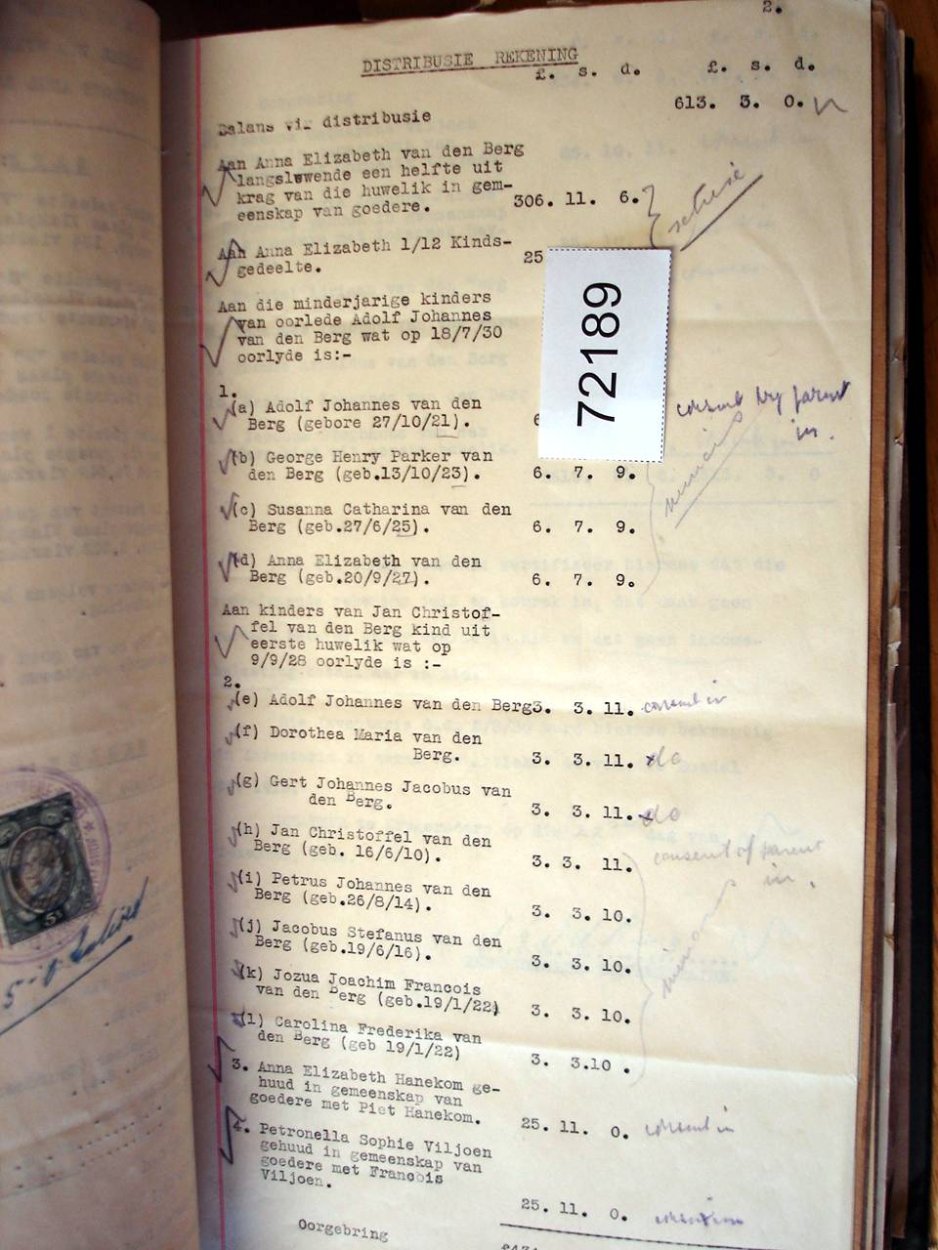 2.
DISTRIBUSIE REKENING
£. s. d. £. s. d.
Balans vir distribusie 613. 3. 0.
Aan Anna Elizabeth van den Berg
langslewende een helfte uit
krag van die huwelik in gem-
eenskap van goedere. 306. 11. 6.
Aan Anna Elizabeth 1/12 Kinds-
gedeelte. 25
72189
Aan die minderjarige kinders
van oorlede Adolf Johannes
van den Berg wat op 18/7/30
oorlyde is:-
1.
(a) Adolf Johannes van den
Berg (gebore 27/10/21). 6
consent by parent
in.
(b) George Henry Parker van
den Berg (geb.13/10/23). 6. 7. 9.
minors
(c) Susanna Catharina van den
Berg (geb.27/6/25). 6. 7. 9.
(d) Anna Elizabeth van den
Berg (geb.20/9/27). 6. 7. 9.
Aan kinders van Jan Christof-
fel van den Berg kind uit
eerste huwelik wat op
9/9/28 oorlyde is :-
2.
(e) Adolf Johannes van den Berg 3. 3. 11. consent in
(f) Dorothea Maria van den
Berg. 3. 3. 11. do
(g) Gert Johannes Jacobus van
den Berg. 3. 3. 11. do
(h) Jan Christoffel van den
Berg (geb. 16/6/10). 3. 3. 11. consent of parent
in.
(i) Petrus Johannes van den
Berg (geb.26/8/14). 3. 3. 10.
(j) Jacobus Stefanus van den
Berg (geb.19/6/16). 3. 3. 10.
(k) Jozua Joachim Francois
van den Berg (geb.19/1/22) 3. 3. 10.
(l) Carolina Frederika van
den Berg (geb 19/1/22) 3. 3.10 .
3. Anna Elizabeth Hanekom ge-
huud in gemeenskap van
goedere met Piet Hanekom. 25. 11. 0. consent in
4. Petronella Sophie Viljoen
gehuud in gemeenskap van
goedere met Francois
Viljoen. 25. 11. 0. consent in
Oorgebring